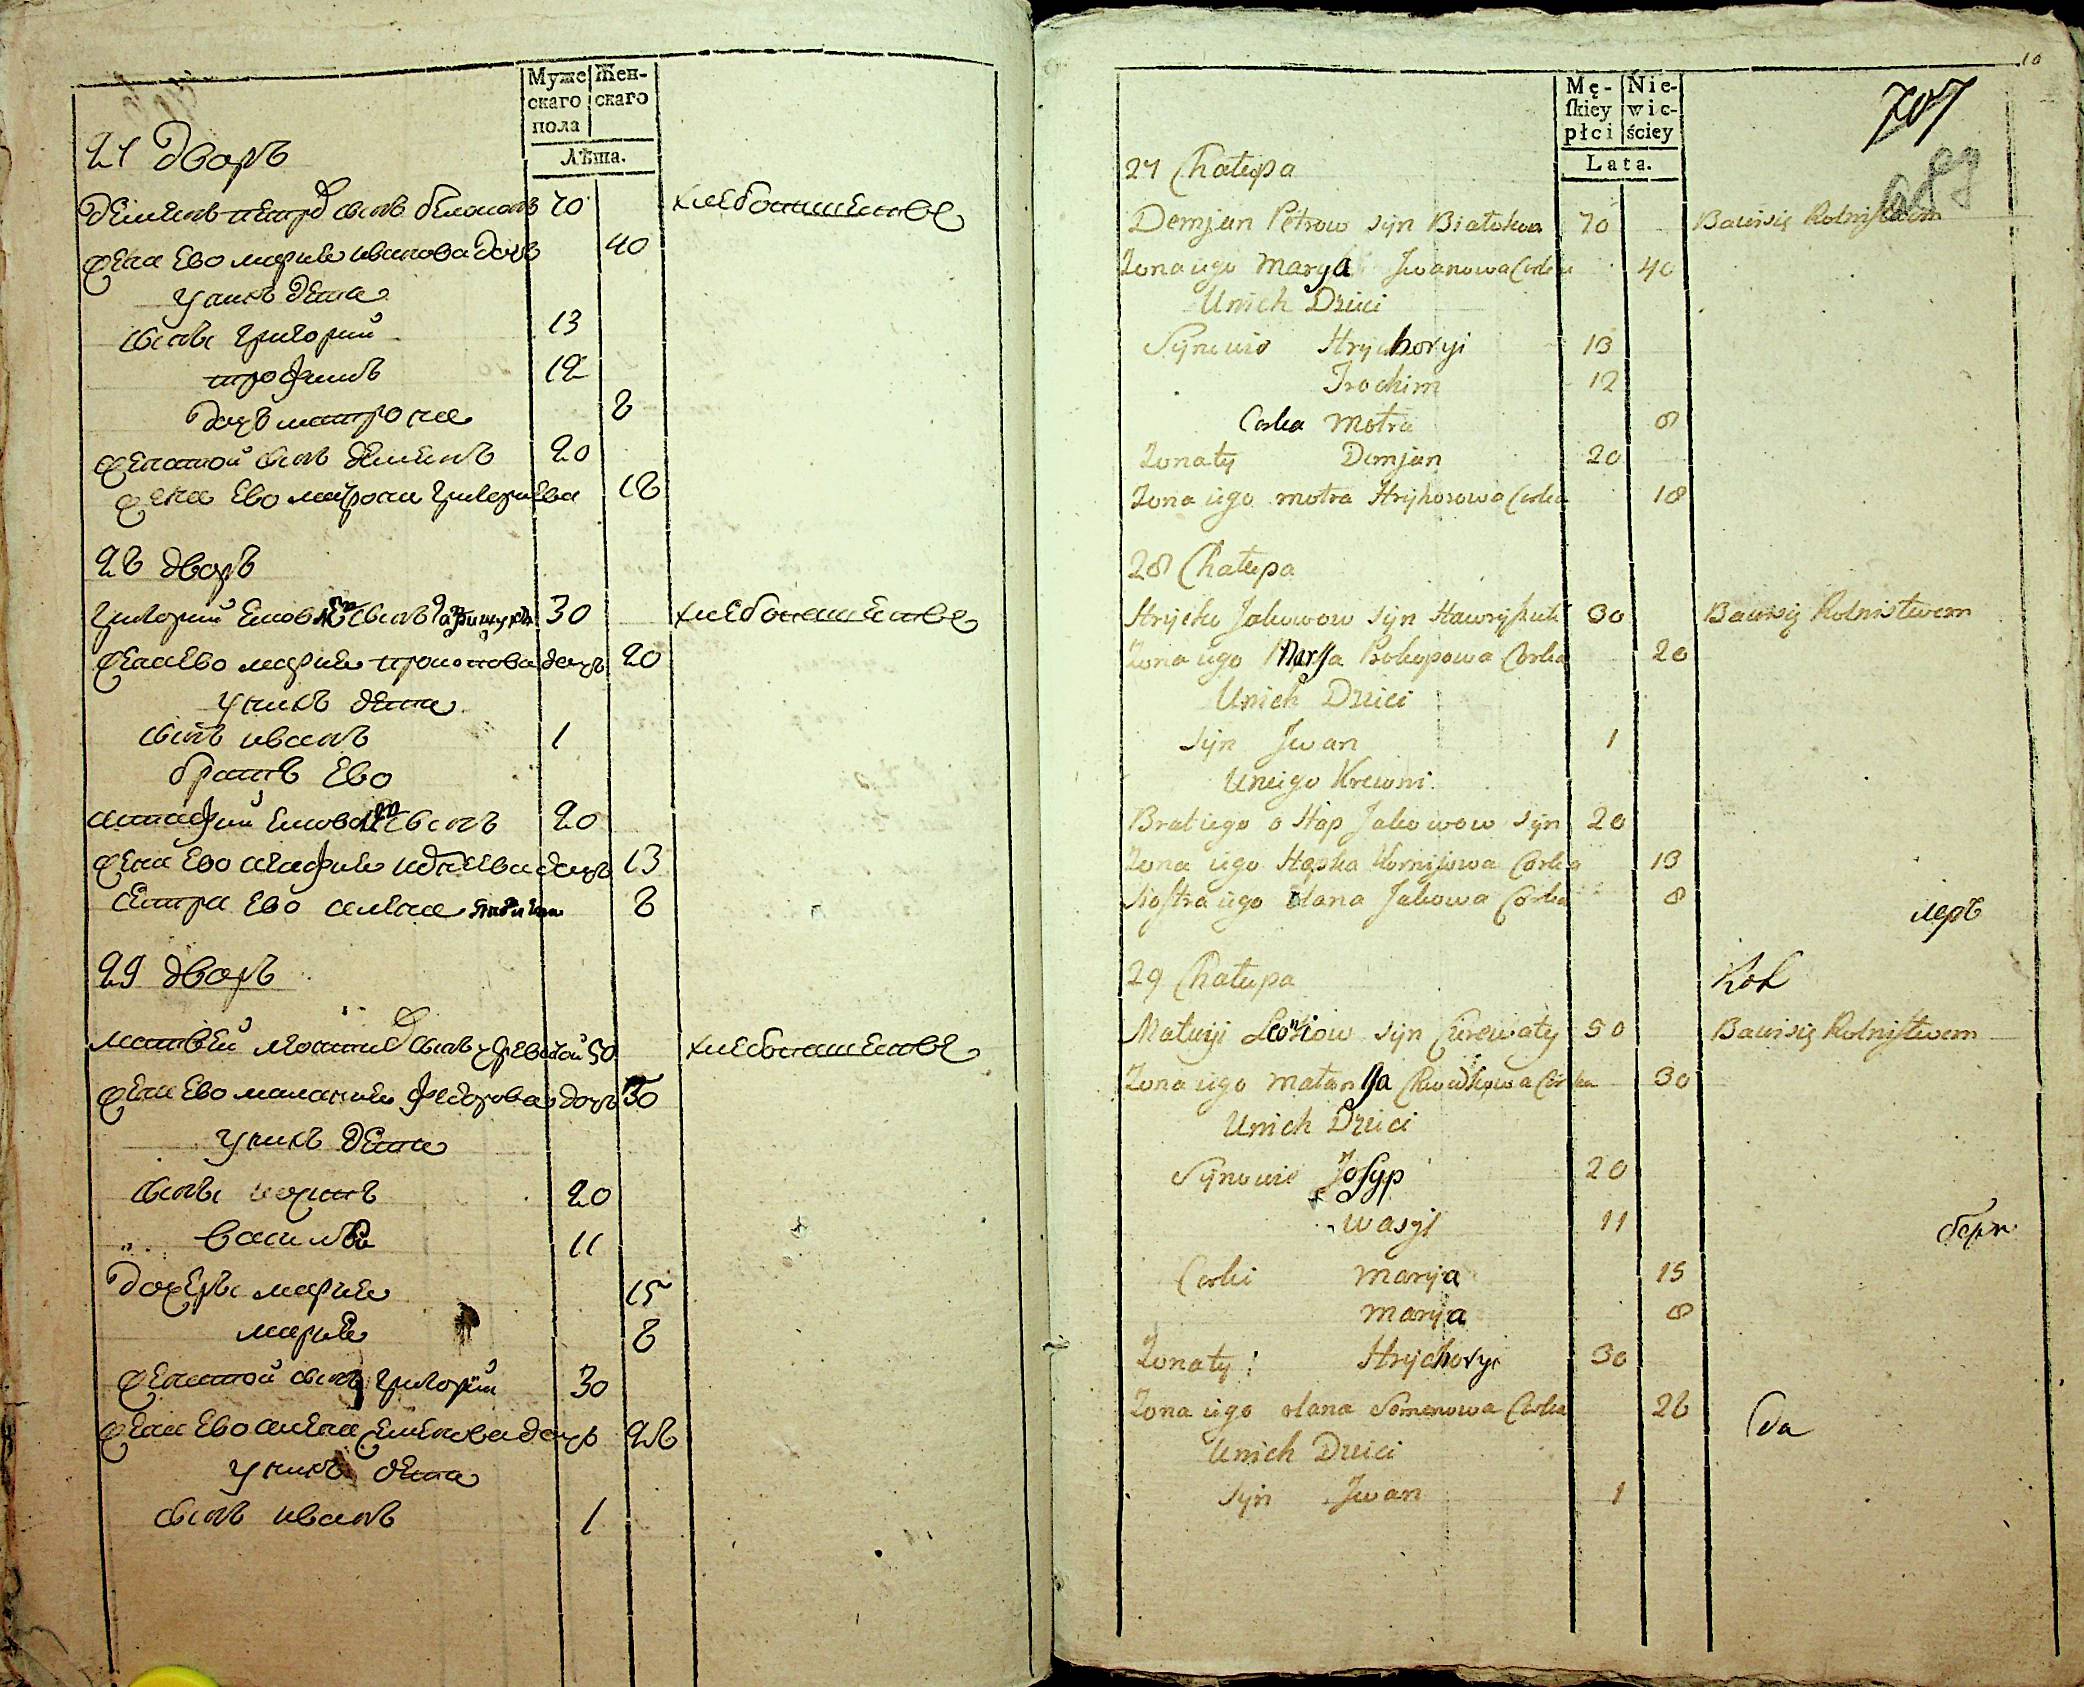 Муже
скаго
пола
Жен-
скаго
Лѣта.
27 дворъ
демянъ петровъ сынъ белоконь 70 хлебопашествѣ
жена ево мария иванова дочь 40
у нихъ дети
сыны григорий 13
трофимъ 12
дочь матрона 8
женатой сынъ демянъ 20
жена ево матрона григориева 18
28 дворъ
григорий яковлевъ сынъ 30 хлебопашествѣ
жена ево мария прокопова дочь 20
у нихъ дети
сынъ иванъ 1
братъ ево
яковлевъ сынъ 20
жена ево агафия дочь 13
сестра ево алена 8
29 дворъ
матвей сынъ 50 хлебопашествѣ
жена ево малания федорова дочь 30
у нихъ дети
сыны 20
василей 11
дочеры мария 15
мария 8
женатой сынъ григорий 30
жена ево алена семенова дочь 28
у нихъ дети
сынъ иванъ 1
10
707
89
Mę-
skiey
płci
Nie-
wie-
ściey
Lata.
27 Chałupa
Demjan Petrow syn Białokon 70 Bawisię Rolnistwem
Zona iego Marya Jwanowa Corka 40
Unich Dzieci
Synowie Hryhoryi 13
Trochim 12
Corka Motra 8
Zonaty Demjan 20
Zona iego Motra Hryhorowa Corka 18
28 Chałupa
Hrycko Jakowow syn Hawryszuk 30 Bawisię Rolnistwem
Zona iego Marya Prokopowa Corka 20
Unich Dzieci
Syn Jwan 1
Uniego Krewni
Brat iego Jakowow syn 20
Zona iego Hapka Kornijowa Corka 13
Siostra iego Olana Jakowa Corka 8
29 Chałupa
Matwiji Leontiow syn Czerewaty 50 Bawisię Rolnistwem
Zona iego Małanya Corka 30
Unich Dzieci
Synowie Josyp 20
Wasyl 11
Corki Marya 15
Marya 8
Zonaty: Hryhoryi 30
Zona iego Olana Semenowa Corka 28
Unich Dzieci
Syn Jwan 1